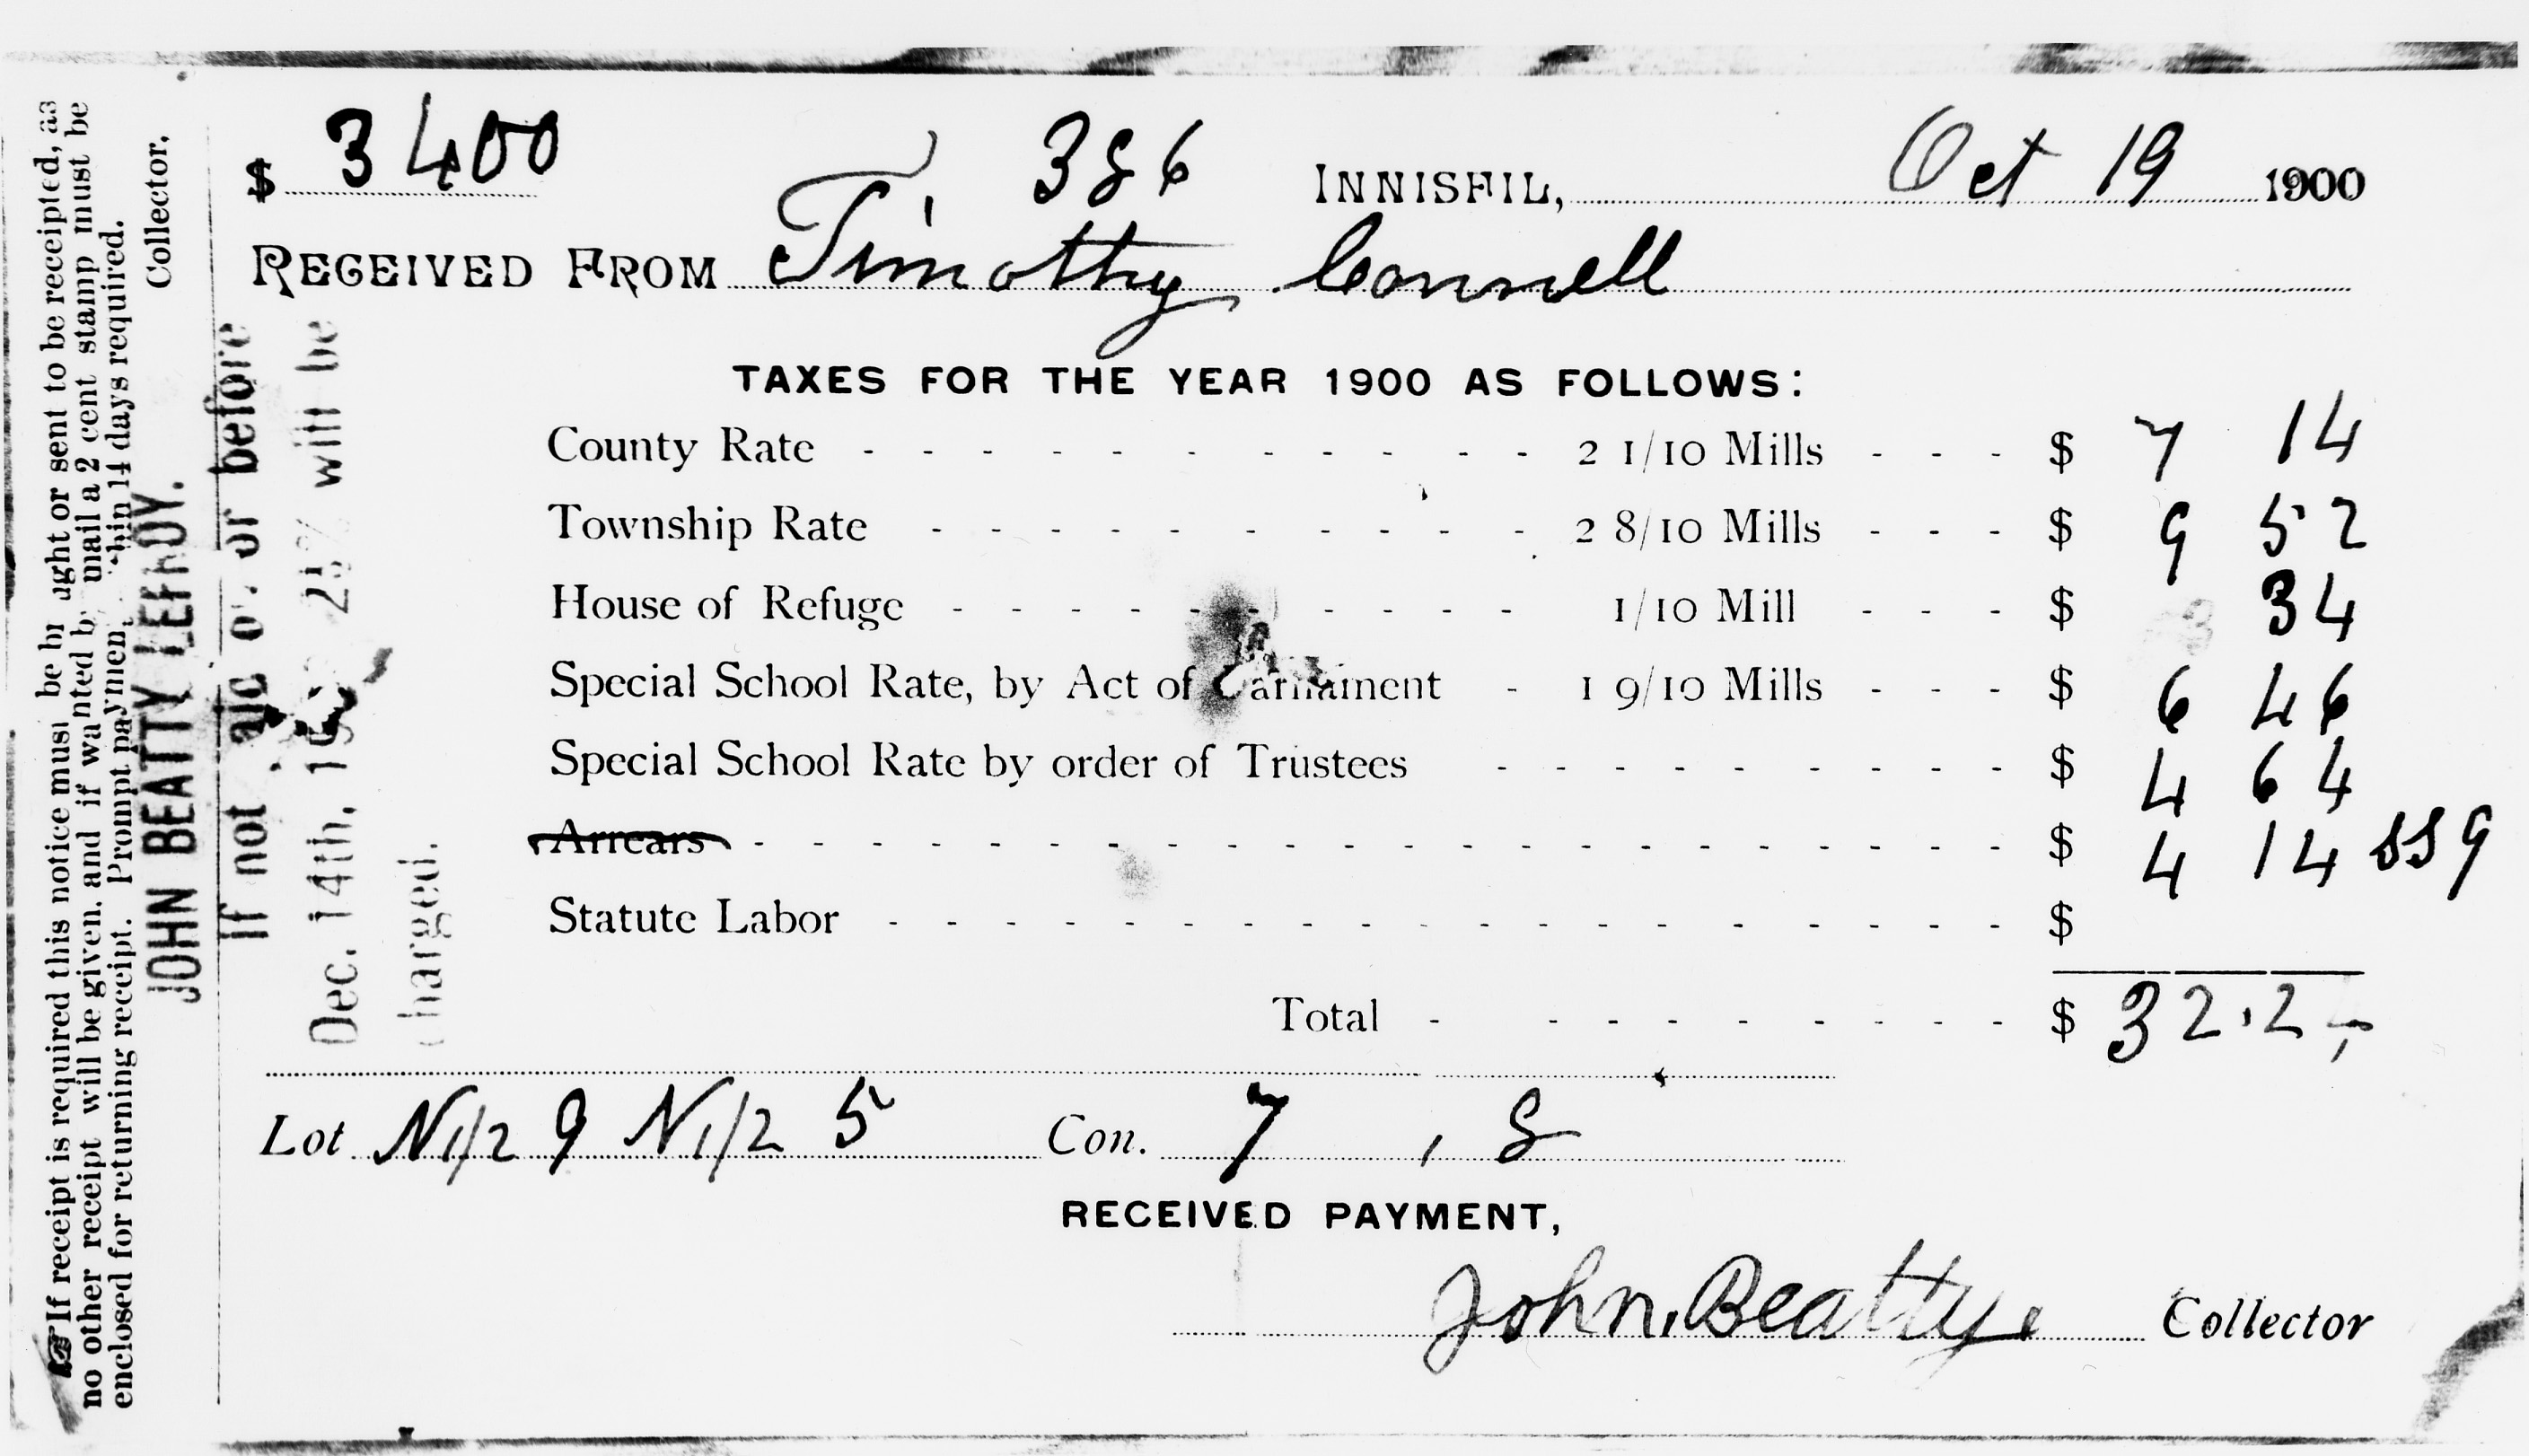 $ 3400 386 INNISFIL, Oct 19 1900
RECEIVED FROM Timothy Connell
TAXES FOR THE YEAR 1900 AS FOLLOWS:
County Rate - - - 2 1/10 Mills - - - $ 7 14
Township Rate - - - 2 8/10 Mills - - - $ 9 52
House of Refuge - - - 1/10 Mill - - - $ 34
Special School Rate, by Act of Parliament - 1 9/10 Mills - - - $ 6 46
Special School Rate by order of Trustees - - - $ 4 64
Arrears - - - $ 4 14 SS 9
Statute Labor - - - $
Total - - - $ 32.2
Lot N 1/2 9 N 1/2 5 Con. 7, 8
RECEIVED PAYMENT,
John Beatty. Collector
☞ If receipt is required this notice must be brought or sent to be receipted, as
no other receipt will be given, and if wanted by mail a 2 cent stamp must be
enclosed for returning receipt. Prompt payment within 14 days required.
JOHN BEATTY LEFROY. Collector,
If not paid on or before
Dec. 14th, will be
charged.